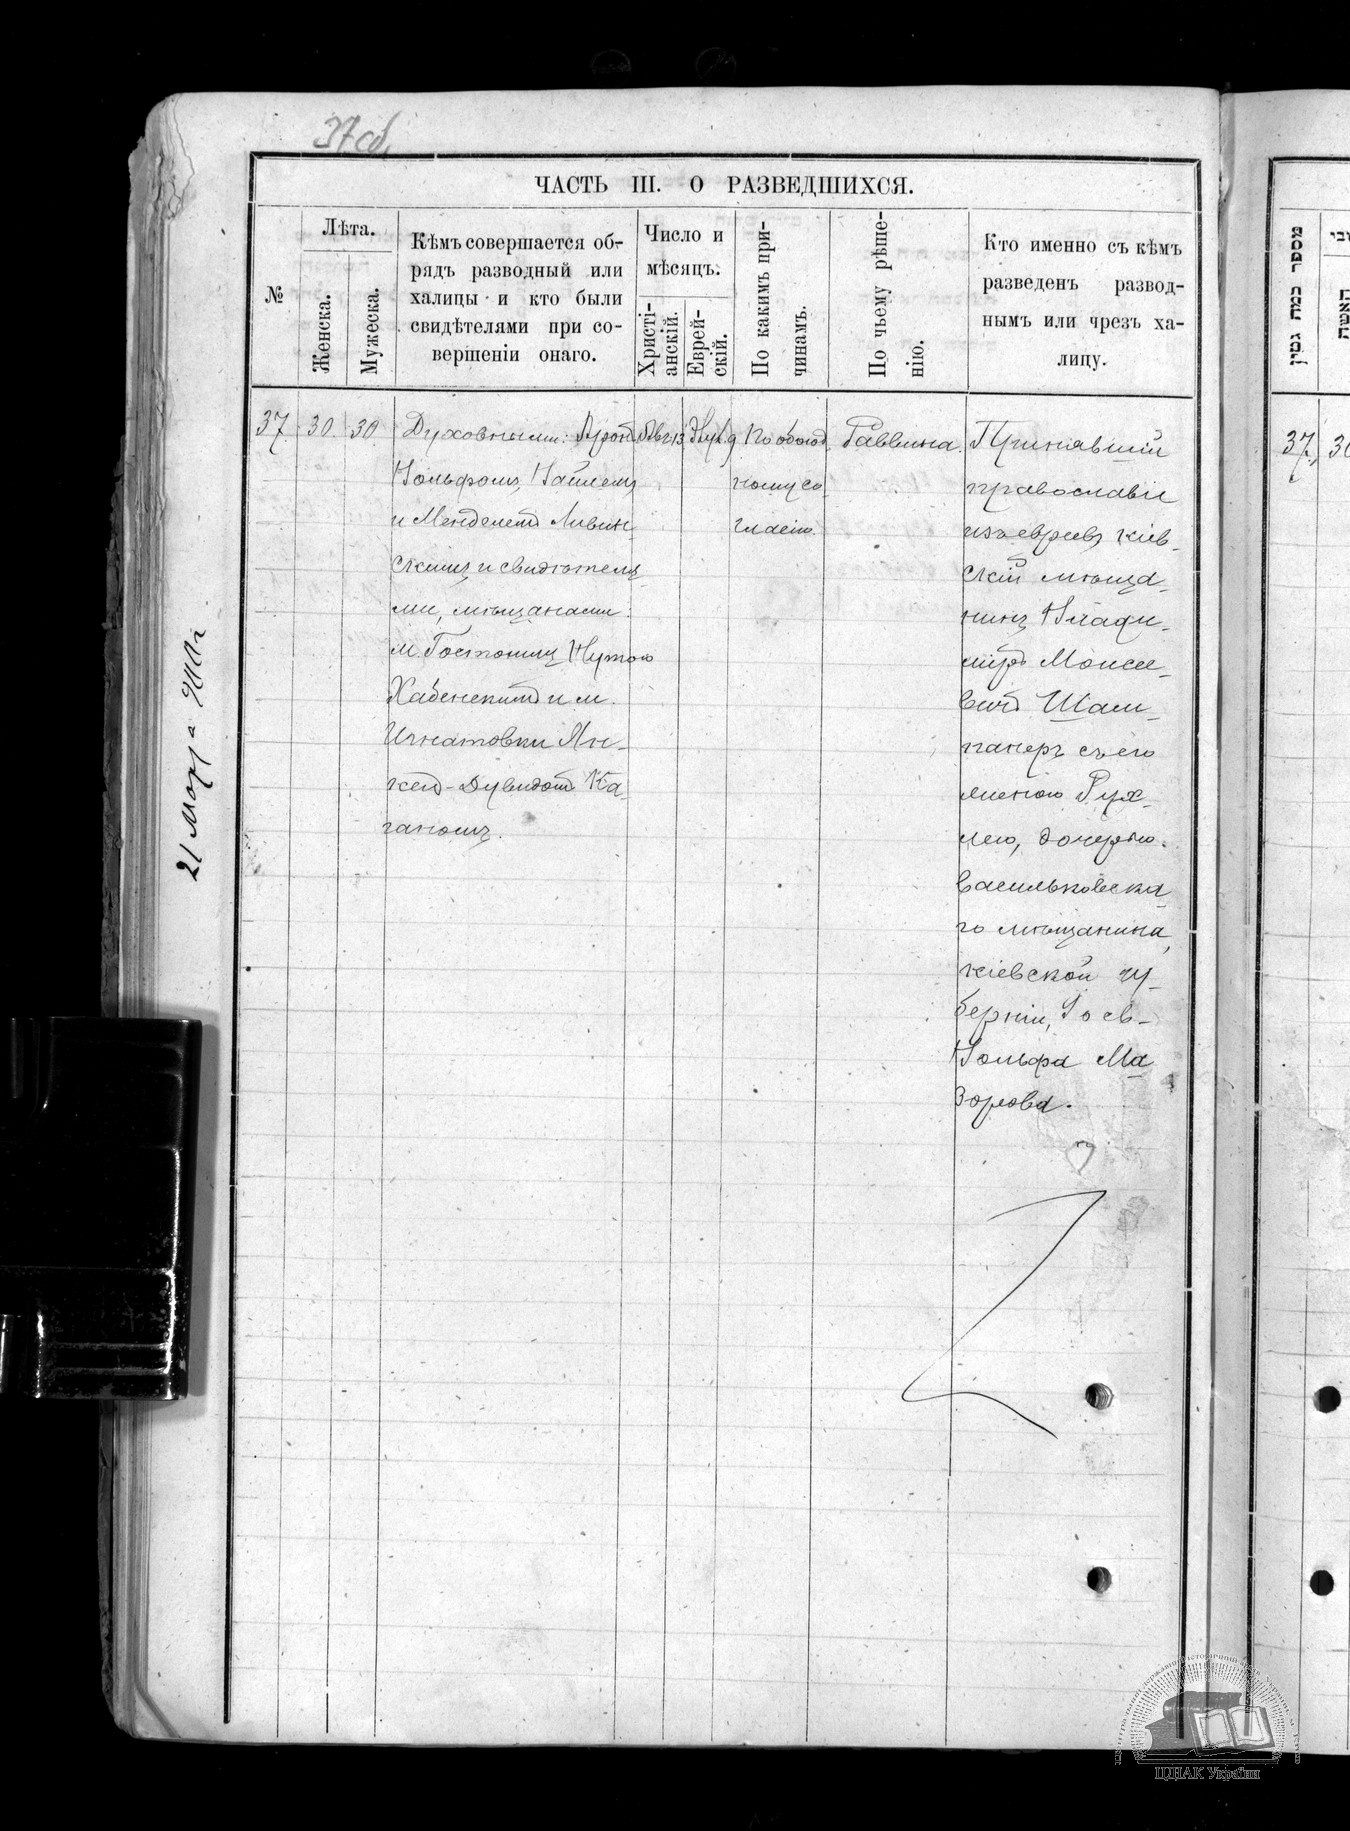 37 об.
ЧАСТЬ III. О РАЗВЕДШИХСЯ.
№
Лѣта.
Женска.
Мужеска.
Кѣмъ совершается об-
рядъ разводный или
халицы и кто были
свидѣтелями при со-
вершеніи онаго.
Число и
мѣсяцъ.
Христі-
анскій.
Еврей-
скій.
По какимъ при-
чинамъ.
По чьему рѣше-
нію.
Кто именно съ кѣмъ
разведенъ развод-
нымъ или чрезъ ха-
лицу.
37
30
30
Духовными: Арон.
Вольфомъ,
и Менделемъ Ливин-
скимъ и свидѣтеля-
ми, мѣщанами:
м. Гостомля Нутою
Хабенскимъ и м.
Игнатовки Ян-
кел-Дувидомъ Ка-
ганомъ.
По обоюд
ному со
гласію.
Раввина.
Принявшій
православіе
изъ евреевъ кіев-
скій мѣща-
нинъ Влади-
миръ Моисее-
вичъ Шам-
панеръ съ его
женою Рух-
лею, дочерью
васильковска-
го мѣщанина,
кіевской гу-
берніи, Іось-
Вольфа Ма
зорова.
21 Мар
37,
30
מספר כמה גטין
האשה
ЦДІАК України